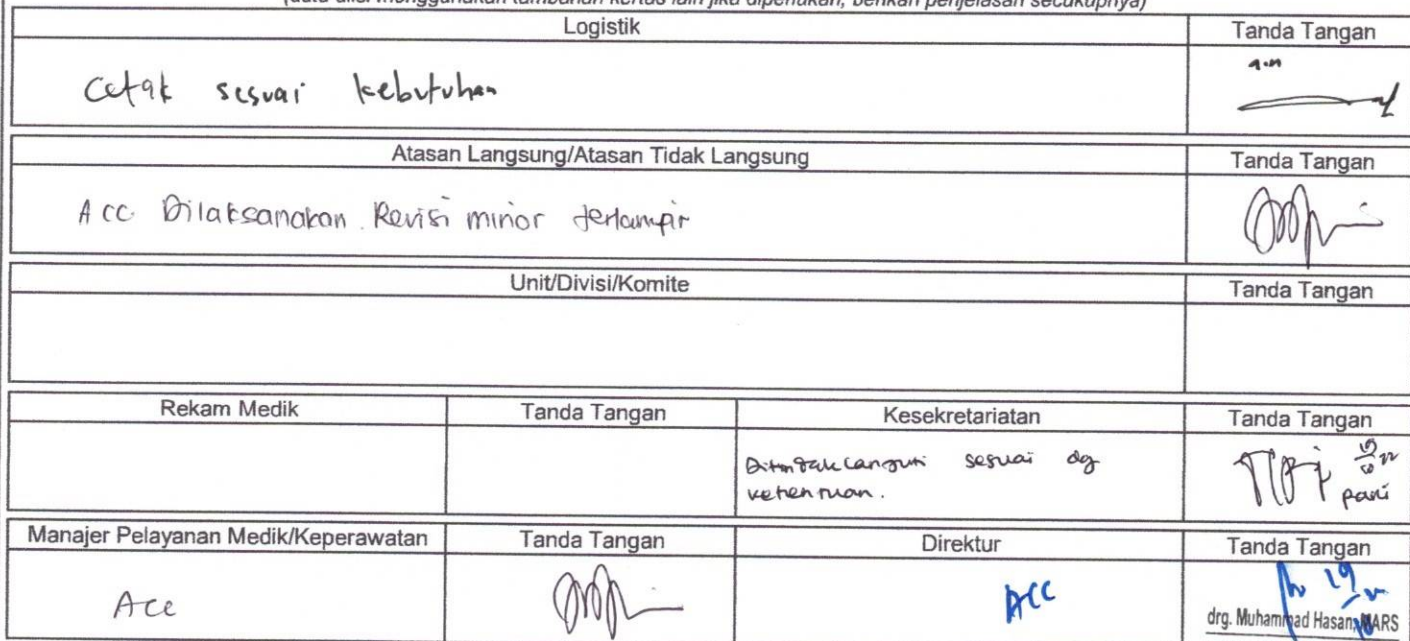 (data diisi menggunakan tambahan kertas lain jika diperlukan, berikan penjelasan secukupnya)
Logistik
Tanda Tangan
Cetak sesuai kebutuhan
a.n
Atasan Langsung/Atasan Tidak Langsung
Tanda Tangan
Acc Dilaksanakan. Revisi minor terlampir
Unit/Divisi/Komite
Tanda Tangan
Rekam Medik
Tanda Tangan
Kesekretariatan
Tanda Tangan
Ditindaklanjuti sesuai dg
ketentuan.
Manajer Pelayanan Medik/Keperawatan
Tanda Tangan
Direktur
Tanda Tangan
Acc
ACC
19
drg. Muhammad Hasan, MARS